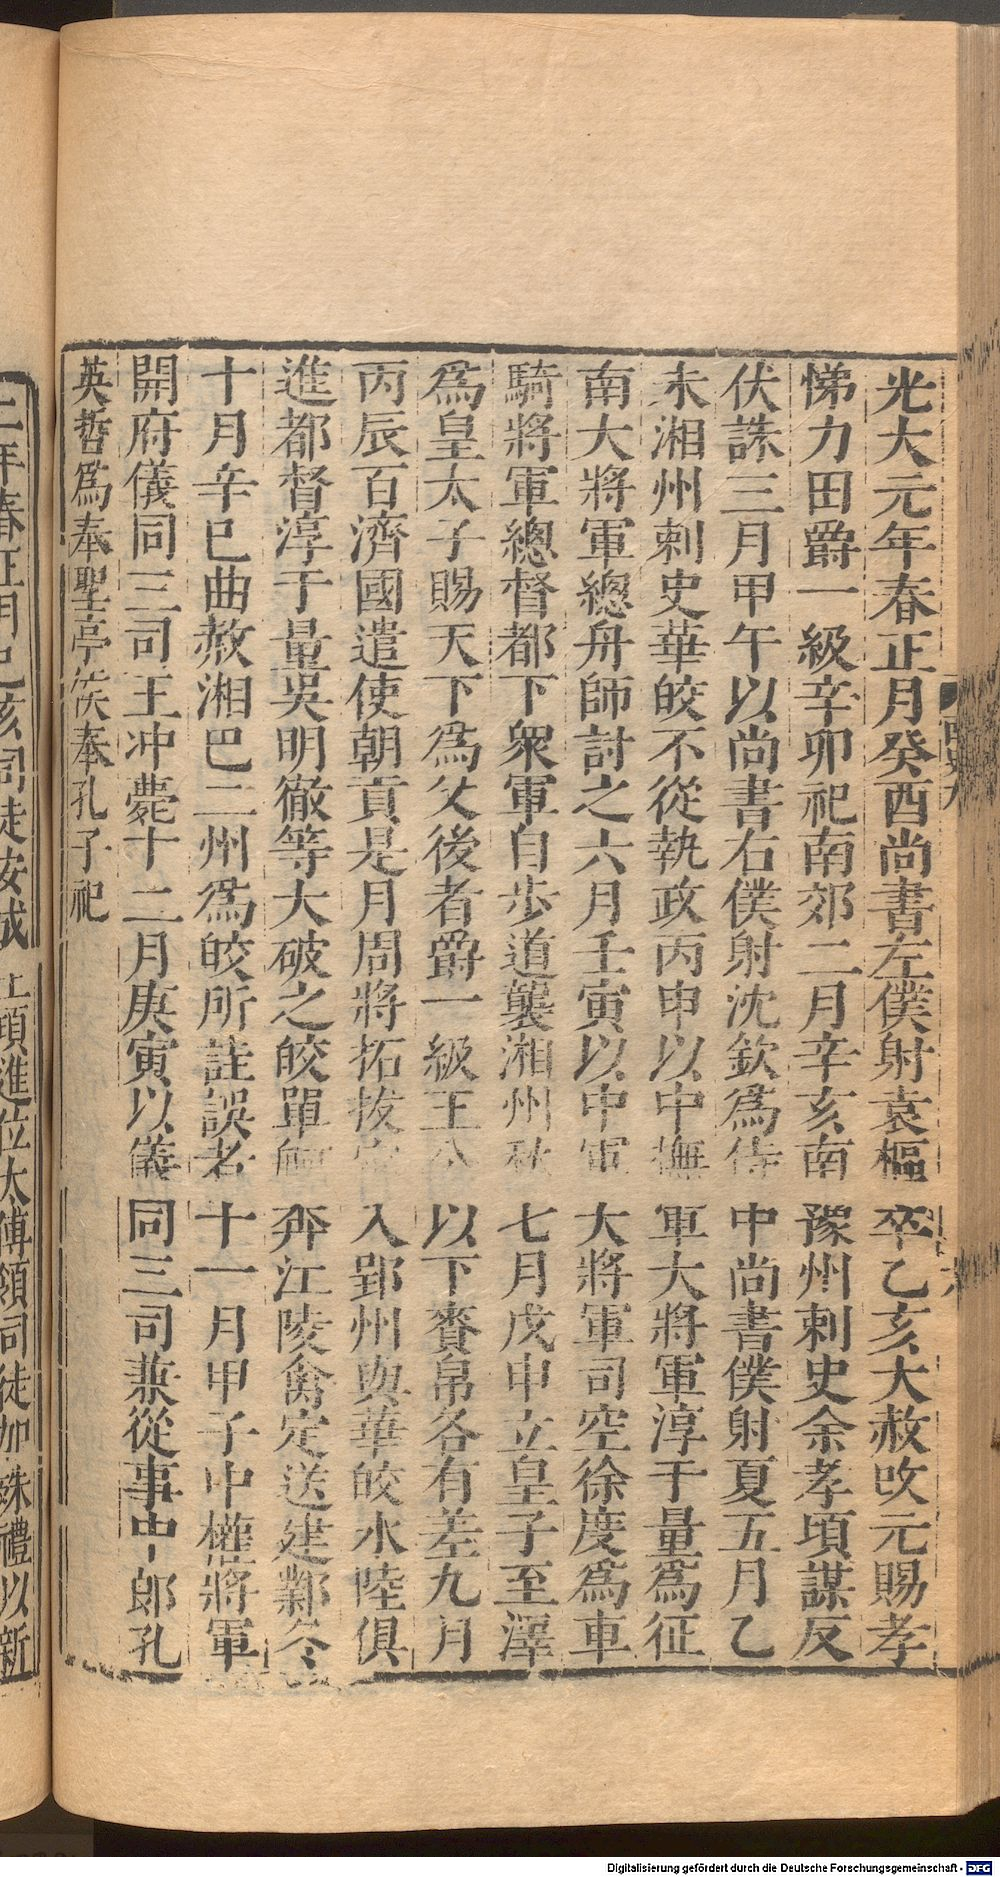 光大元年春正月癸酉尚書左僕射袁樞卒乙亥大赦攺元賜孝
悌力田爵一級辛卯祀南郊二月辛亥南豫州刺史余孝頃謀反
伏誅三月甲午以尚書右僕射沈欽爲侍中尚書僕射夏五月乙
未湘州刺史華皎不從執政丙申以中撫軍大將軍淳于量爲征
南大將軍總舟師討之六月壬寅以中軍大將軍司空徐度爲車
騎將軍總督都下衆軍自步道襲湘州秋七月戊申立皇子至澤
爲皇太子賜天下爲父後者爵一級王公以下賚帛各有差九月
丙辰百濟國遣使朝貢是月周將拓拔定入郢州與華皎水陸俱
進都督淳于量吳明徹等大破之皎單舸奔江陵禽定送建鄴冬
十月辛巳曲赦湘巴二州爲皎所詿誤者十一月甲子中權將軍
開府儀同三司王冲薨十二月庚寅以儀同三司兼從事中郎孔
英哲爲奉聖亭侯奉孔子祀
二年春正月己亥司徒安成王頊進位太傅領司徒加殊禮以新
Digitalisierung gefördert durch die Deutsche Forschungsgemeinschaft - DFG